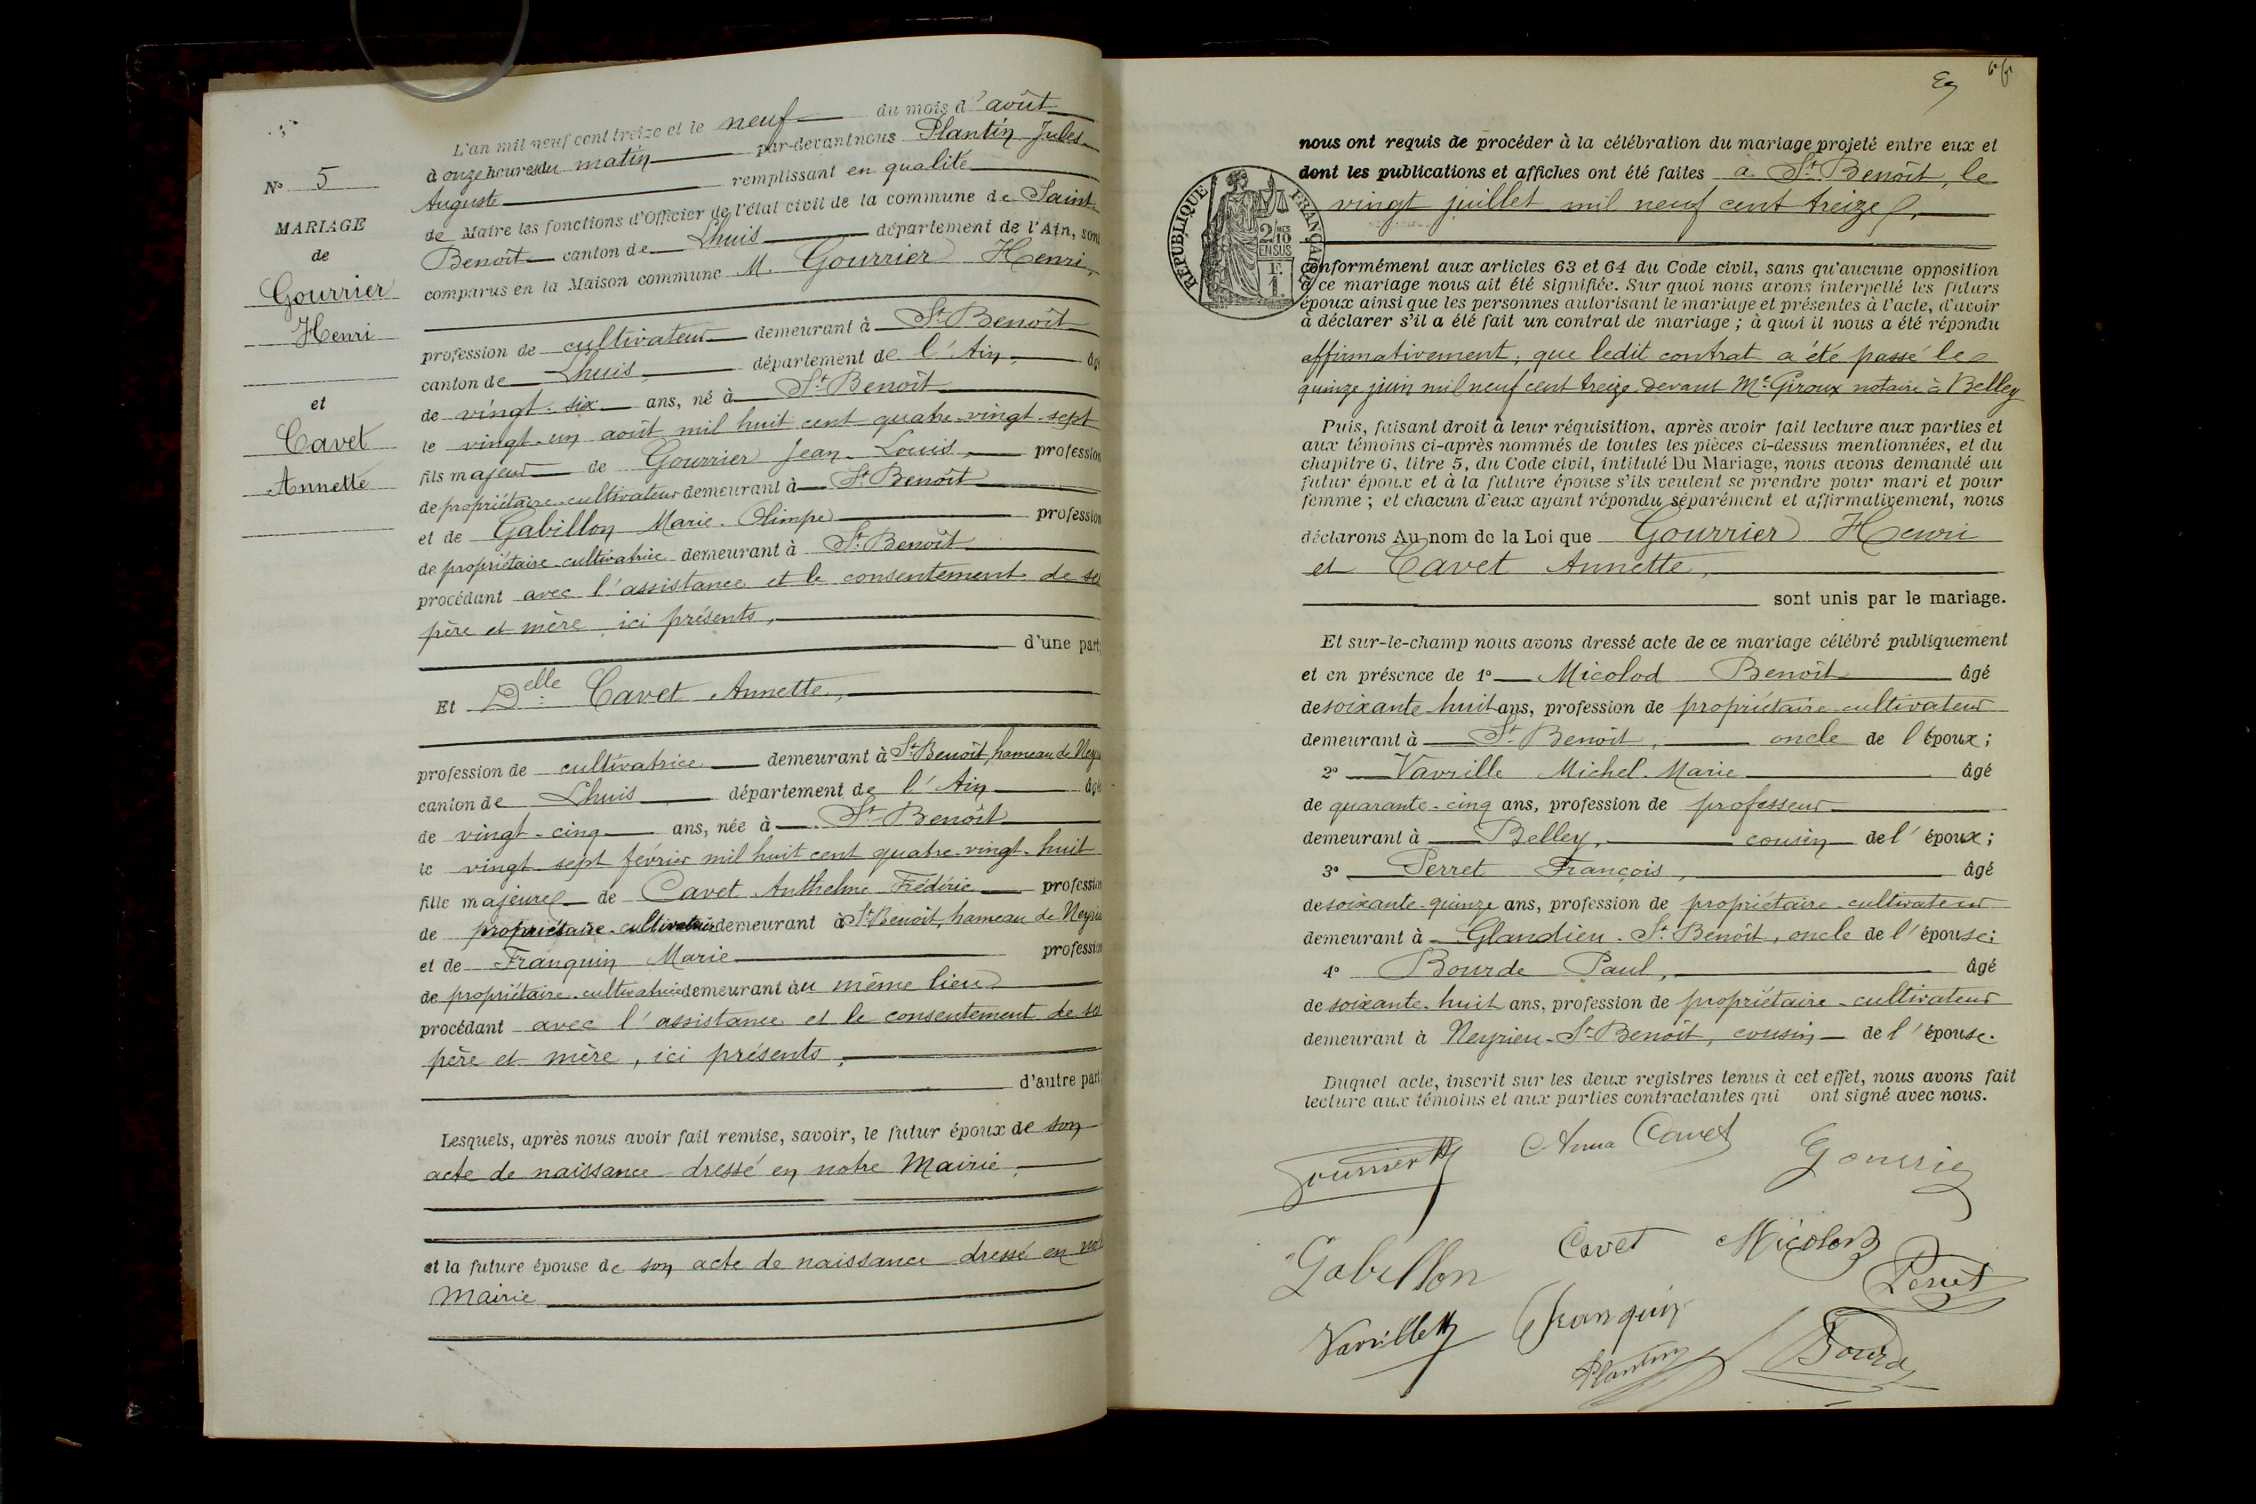 L'an mil neuf cent treize et le neuf du mois d'août
à onze heures du matin par-devant nous Plantin Jules
Auguste remplissant en qualité
de Maire les fonctions d'Officier de l'état civil de la commune de Saint
Benoît canton de Lhuis département de l'Ain, sont
comparus en la Maison commune M. Gourrier Henri,
profession de cultivateur demeurant à St. Benoît
canton de Lhuis département de l'Ain, âgé
de vingt-six ans, né à St. Benoît
le vingt-un août mil huit cent quatre-vingt-sept
fils majeur de Gourrier Jean-Louis, profession
de propriétaire-cultivateur demeurant à St. Benoît
et de Gabillon Marie-Olimpe profession
de propriétaire-cultivatrice demeurant à St. Benoît
procédant avec l'assistance et le consentement de ses
père et mère ici présents,
d'une part;
Et Delle. Cavet Annette,
profession de cultivatrice demeurant à St. Benoît, hameau de Neyrieu
canton de Lhuis département de l'Ain âgée
de vingt-cinq ans, née à St. Benoît
le vingt-sept février mil huit cent quatre-vingt-huit
fille majeure de Cavet Anthelme Frédéric profession
de propriétaire-cultivateur demeurant à St. Benoît, hameau de Neyrieu
et de Franquin Marie profession
de propriétaire-cultivatrice demeurant au même lieu
procédant avec l'assistance et le consentement de ses
père et mère, ici présents,
d'autre part;
Lesquels, après nous avoir fait remise, savoir, le futur époux de son
acte de naissance dressé en notre Mairie,
et la future épouse de son acte de naissance dressé en notre
Mairie
No 5
MARIAGE
de
Gourrier
Henri
et
Cavet
Annette
nous ont requis de procéder à la célébration du mariage projeté entre eux et
dont les publications et affiches ont été faites à St. Benoît, le
vingt juillet mil neuf cent treize,
RÉPUBLIQUE FRANÇAISE
2/10
EN SUS
F.
1.
conformément aux articles 63 et 64 du Code civil, sans qu'aucune opposition
à ce mariage nous ait été signifiée. Sur quoi nous avons interpellé les futurs
époux ainsi que les personnes autorisant le mariage et présentes à l'acte, d'avoir
à déclarer s'il a été fait un contrat de mariage; à quoi il nous a été répondu
affirmativement, que ledit contrat a été passé le
quinze juin mil neuf cent treize devant Me. Giroux notaire à Belley
Puis, faisant droit à leur réquisition, après avoir fait lecture aux parties et
aux témoins ci-après nommés de toutes les pièces ci-dessus mentionnées, et du
chapitre 6, titre 5, du Code civil, intitulé Du Mariage, nous avons demandé au
futur époux et à la future épouse s'ils veulent se prendre pour mari et pour
femme; et chacun d'eux ayant répondu séparément et affirmativement, nous
déclarons Au nom de la Loi que Gourrier Henri
et Cavet Annette,
sont unis par le mariage.
Et sur-le-champ nous avons dressé acte de ce mariage célébré publiquement
et en présence de 1o Micolod Benoît âgé
de soixante-huit ans, profession de propriétaire-cultivateur
demeurant à St. Benoît, oncle de l'époux;
2o Vavrille Michel-Marie âgé
de quarante-cinq ans, profession de professeur
demeurant à Belley, cousin de l'époux;
3o Perret François, âgé
de soixante-quinze ans, profession de propriétaire-cultivateur
demeurant à Glandieu-St. Benoît, oncle de l'épouse;
4o Bourde Paul, âgé
de soixante-huit ans, profession de propriétaire-cultivateur
demeurant à Neyrieu-St. Benoît, cousin de l'épouse.
Duquel acte, inscrit sur les deux registres tenus à cet effet, nous avons fait
lecture aux témoins et aux parties contractantes qui ont signé avec nous.
Gourrier H Anna Cavet Gourrier
Gabillon Cavet Micolod Perret
Vavrille M Franquin
Plantin Bourde